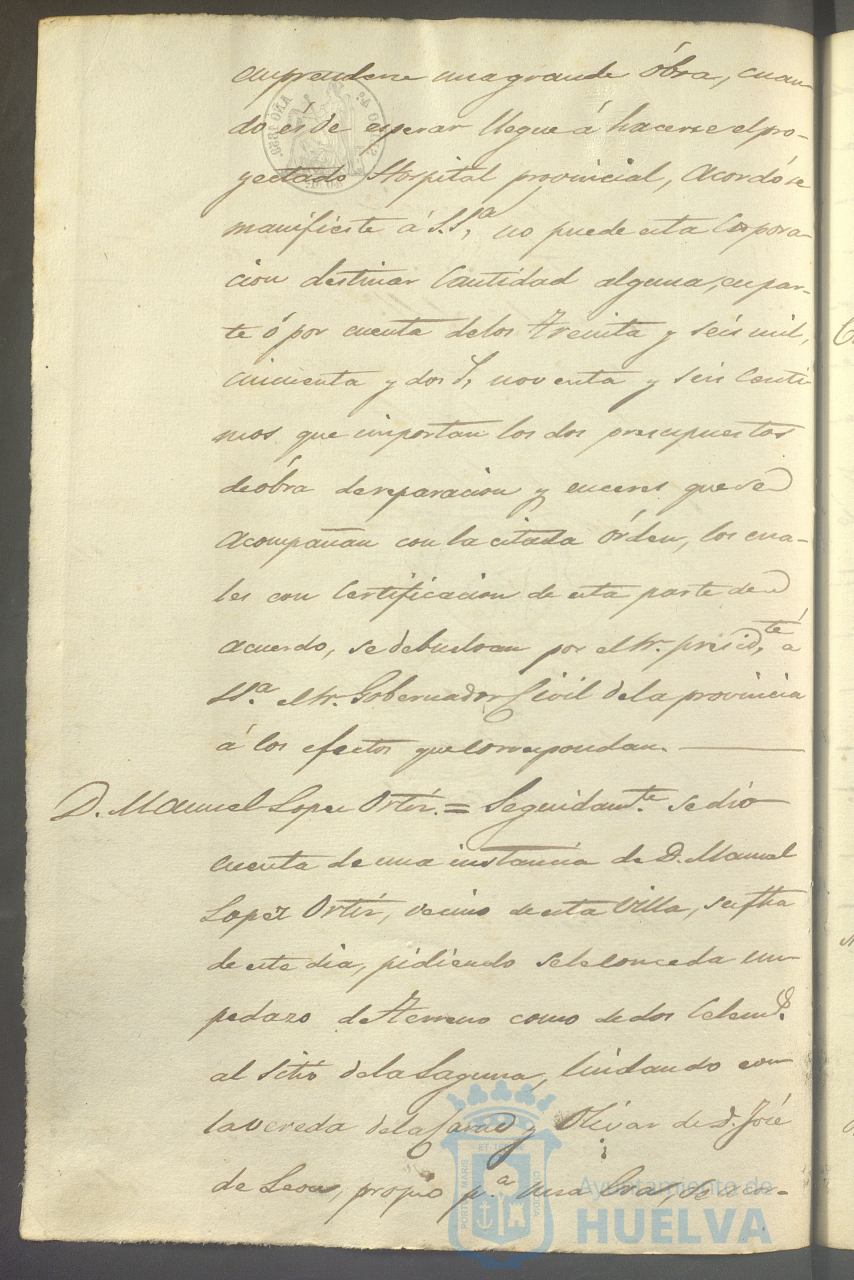 emprenderse una grande óbra, cuan-
do es de esperar llegue á hacerse el pro-
yectado Hospital provincial, acordóse
manifieste á S.Sª, no puede esta Corpora-
cion destinar Cantidad alguna, en par-
te ó por cuenta de los treinta y seis mil,
cincuenta y dos r, noventa y seis centi-
mos que importan los dos presupuestos
de óbra de reparacion y enceres que se
acompañan con la citada órden, los cua-
les con Certificacion de esta parte de
acuerdo, se debuelvan por el Sr. presidte á
S.Sª. el Sr. Gobernador Civil de la provincia
á los efectos que correspondan.
D. Manuel Lopez Ortiz. = Seguidamte. se dio
cuenta de una instancia de D. Manuel
Lopez Ortiz, vecino de esta Villa, su fha
de este dia, pidiendo se le conceda un
pedazo de terreno como de dos Celems.
al sitio de la Laguna, lindando con
la vereda de la y Olivar de D. José
de Leon, propio pª una Era, se acor-
AÑO 1850.
Ayuntamiento de
HUELVA